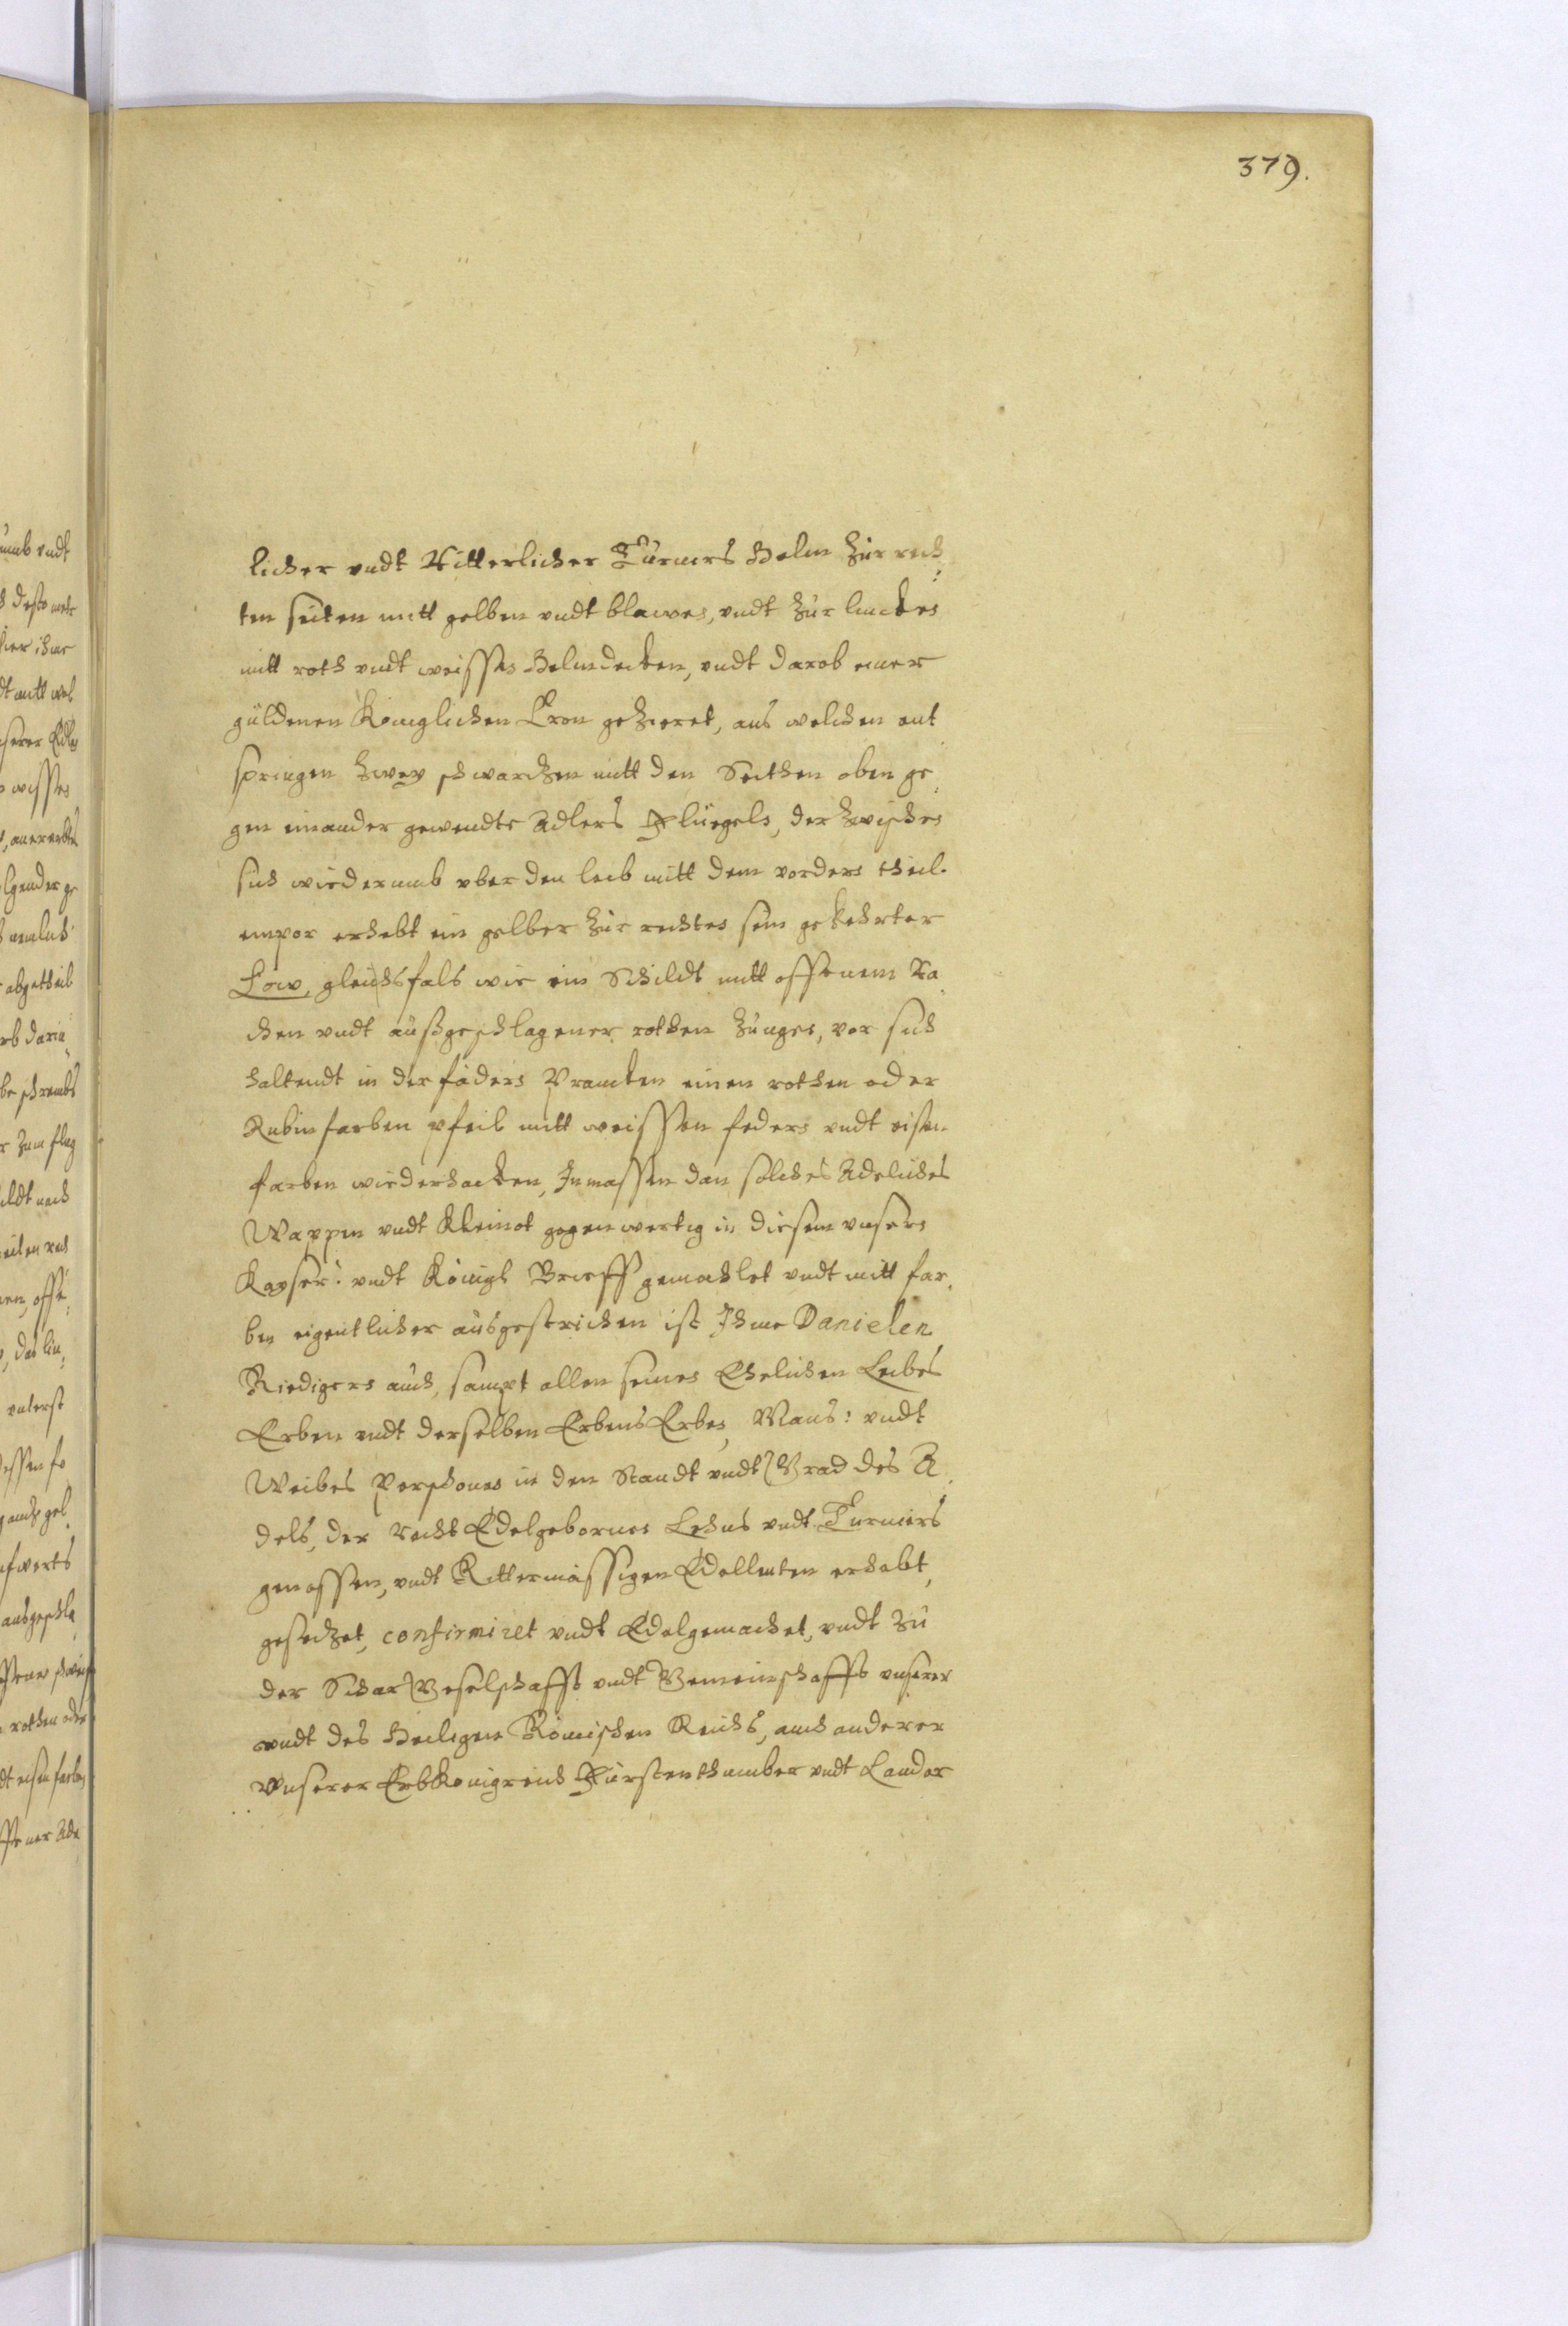 379.
licher vndt Ritterlicher Turners Helm zur rech
ten seiten mitt gelben vndt blawen, vndt zur lincken
mitt roth vndt weissen Helmdecken, vndt darob einer
güldenen Königlichen Cron gezieret, aus welchen ent
springen zwey schwarzen mitt den Seithen oben ge
gen einander gewendte Adlers Flüegels, der zwischen
sich wiederumb vber den leib mitt dem vordern theil
empor erhebt ein gelber zur rechten sein gekehrter
Löw, gleichsfals wie ein Schildt mitt offenem Ra
chen vndt außgeschlagener rothen Zungen, vor sich
haltendt in der födern Prancken einen rothen oder
Rubin farben pfeil mitt weissen federn vndt eisen
farben wiederhacken, Inmassen dan solches Adeliches
Wappen vndt Kleinot gegenwertig in diesem vnsern
Kayser: vndt Königl Brieff gemahlet vndt mitt far
ben eigentlicher ausgestrichen ist Ihme Danielen
Riedigern auch, sampt allen seines Ehelichen Leibes
Erben vndt derselben ErbensErben, Mans: vndt
Weibes Perschones in den Standt vndt Grad des A
dels, der recht Edelgebornen Lehns vndt Turniers
genossen, vndt Rittermässigen Edelleuten erhebt,
gesetzet, confirmiret vndt Edelgemachet, vndt zu
der Schar Geselschafft vndt Gemeinschafft vnserer
vndt des Heiligen Römischen Reichs, auch anderer
Vnserer ErbKönigreich Fürstenthumber vndt Lander
umb vndt
desto mehr
dt mitt wol
serer Edle
weissen
lgender ge
nemlich
abgetheil
rb darin
zum flug
ildt nach
en, offe
, das lin
vnterst
gantz gel
fwerts
ausgeschla
rothen oder
dt eisenfarben